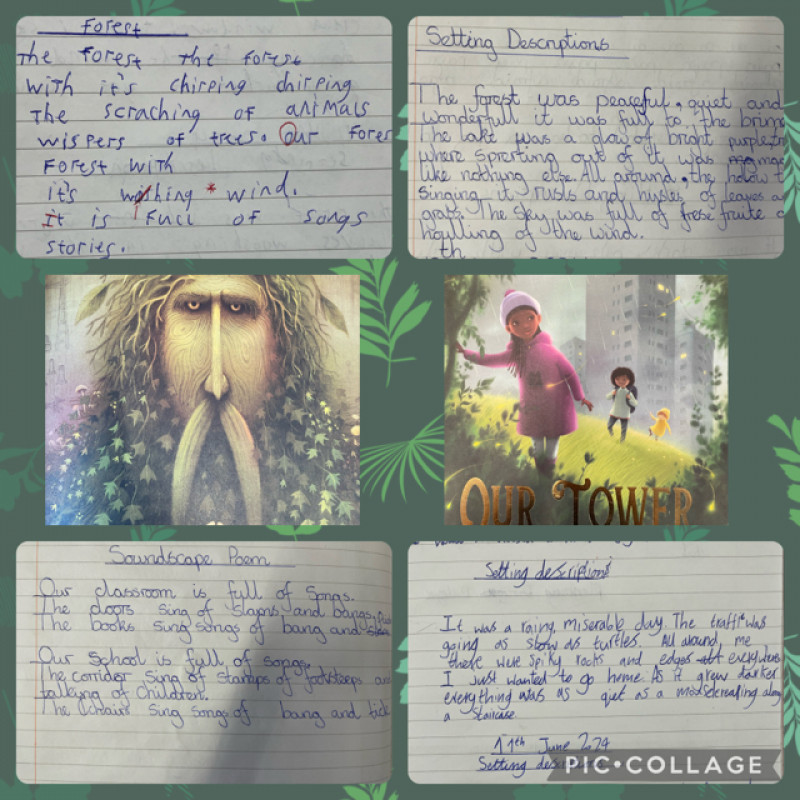 Forest
The forest the forest
with it's chirping chirping
The scraching of animals
wispers of trees. Our fores
Forest with
it's wishing * wind.
It is full of songs
stories.
Setting Descriptions
The forest was peaceful, quiet and
wonderfull it was full to the brime
The lake was a glow of bright purple
where sprerting out of it was
like nothing else. All around, the hollow t
singing it rusls and husles of leaves a
grass. The sky was full of frese fruite a
houlling of the wind.
th
OUR TOWER
Soundscape Poem
Our classroom is full of songs.
The doors sing of slams and bangs,
The books sing songs of bang and
Our School is full of songs,
The corridor sing of stamps of footsteps an
talking of children.
The chairs sing songs of bang and tick
Setting descriptions
It was a rainy, miserable day. The traffic was
going as slow as turtles. All around, me
there were spiky rocks and edges everywhere
I just wanted to go home. As it grew darker
everything was as quiet as a
a staircase
11th June 2024
Setting des
PIC•COLLAGE